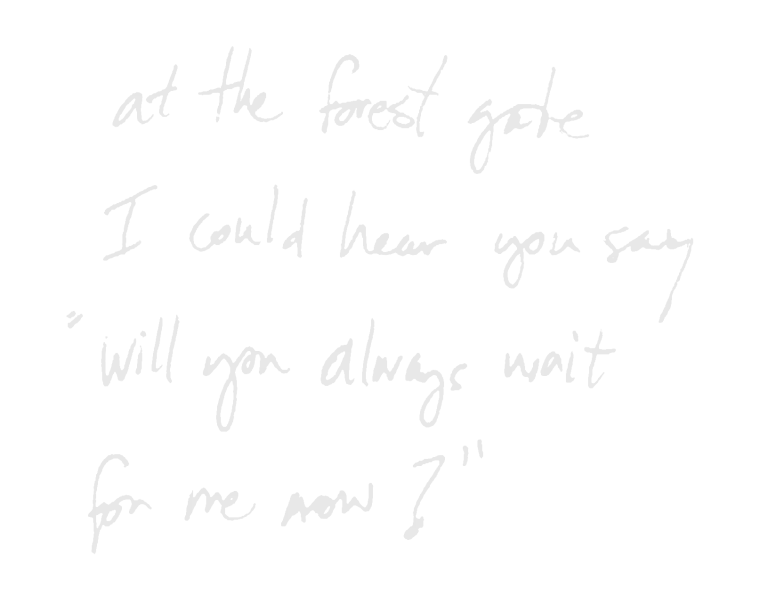 at the forest gate
I could hear you say
"will you always wait
for me now?"